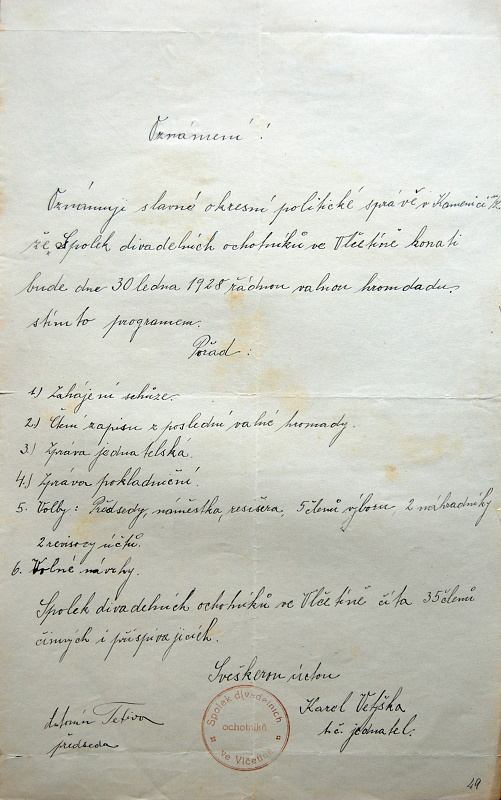 Oznámení!
Oznámuji slavné okresní politické správě v Kamenici
že Spolek divadelních ochotníků ve Vlčetíně konati
bude dne 30 ledna 1928 řádnou valnou hromdadu
stímto programem.
Pořad:
1.) Zahájení schůze.
2.) Čtení zapisu z poslední valné hromady.
3.) Zpráva jednatelská.
4.) Zpráva pokladniční.
5. Volby: Předsedy, náměstka, resišéra, 5 členů výboru 2 náhradníky
2 revisory účtů.
6. Volné návrhy.
Spolek divadelních ochotníků ve Vlčetíně číta 35 členů
činných i přispivajicích.
Sveškerou úctou
Antonín Tetiva
předseda
Spolek divadelních
ochotníků
ve Vlčetíně
Karel Vetýška
t.č. jednatel.
49